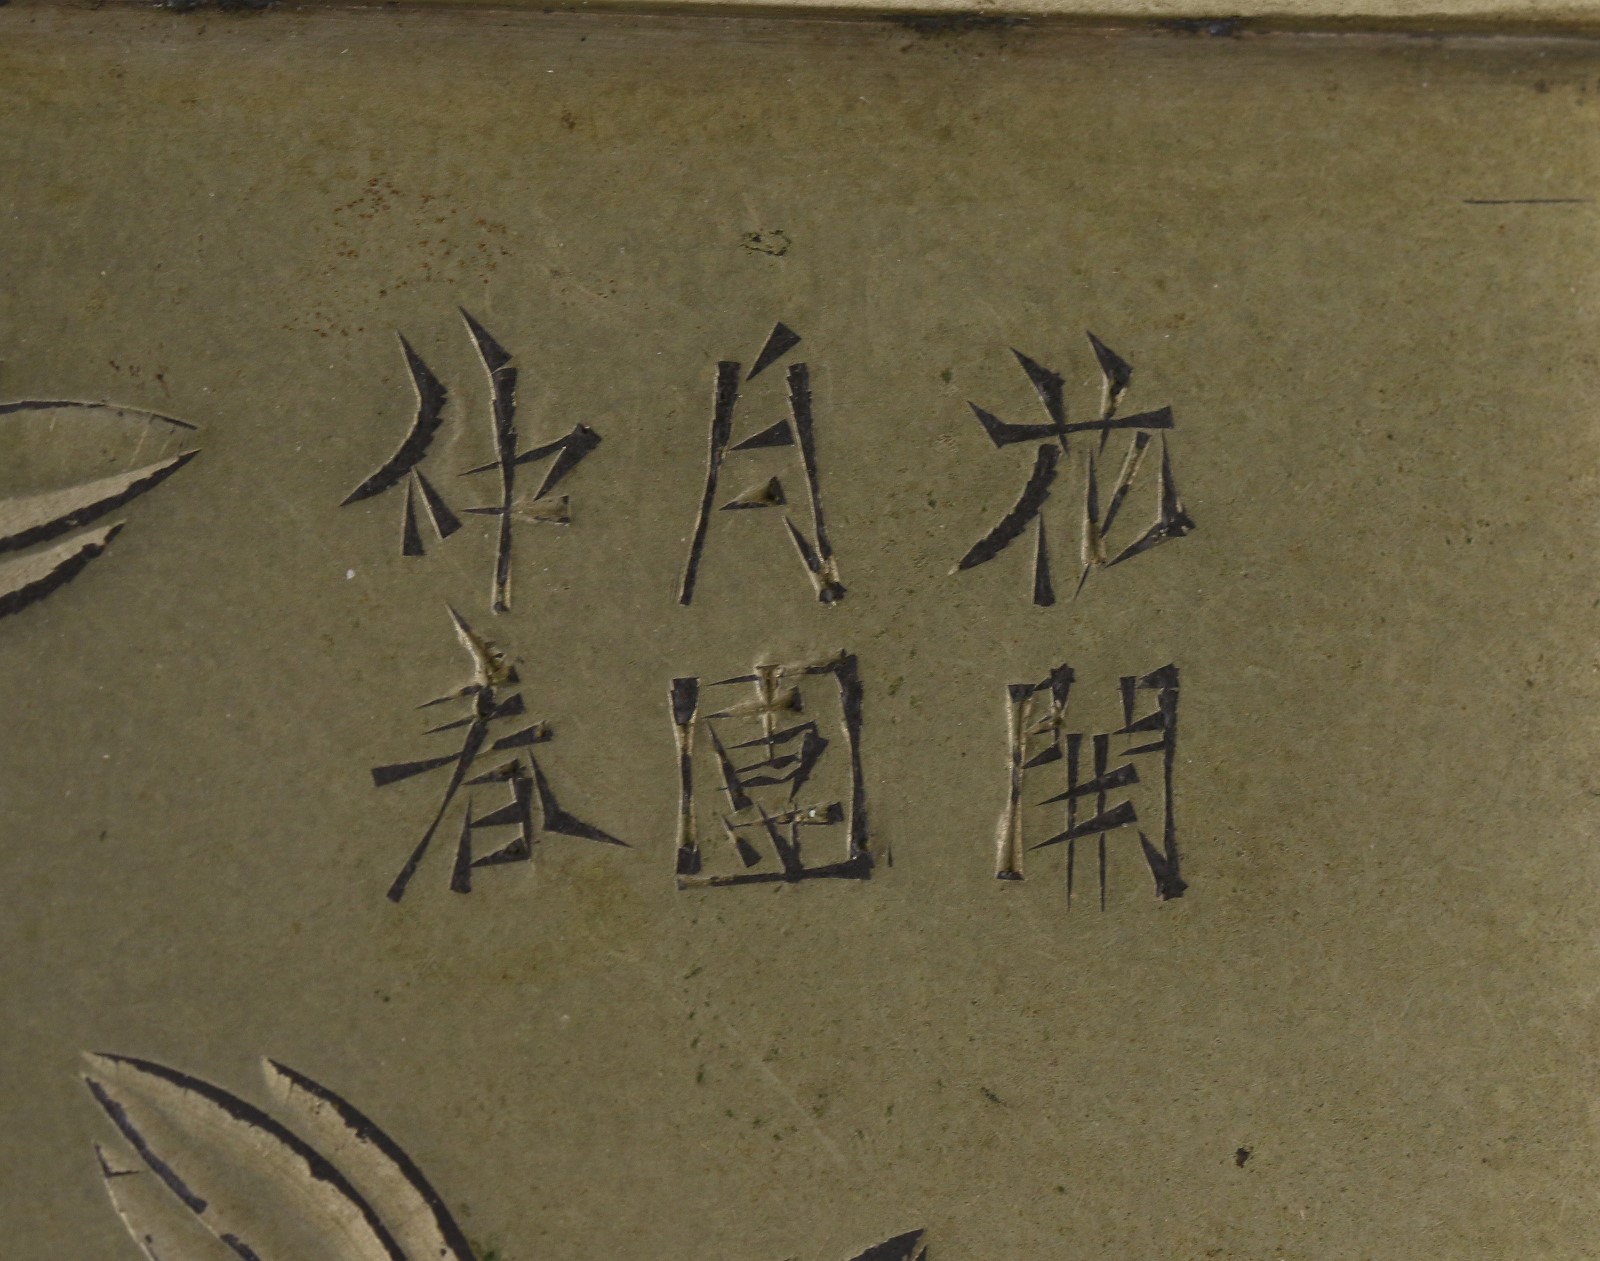 花開
月圓
仲春